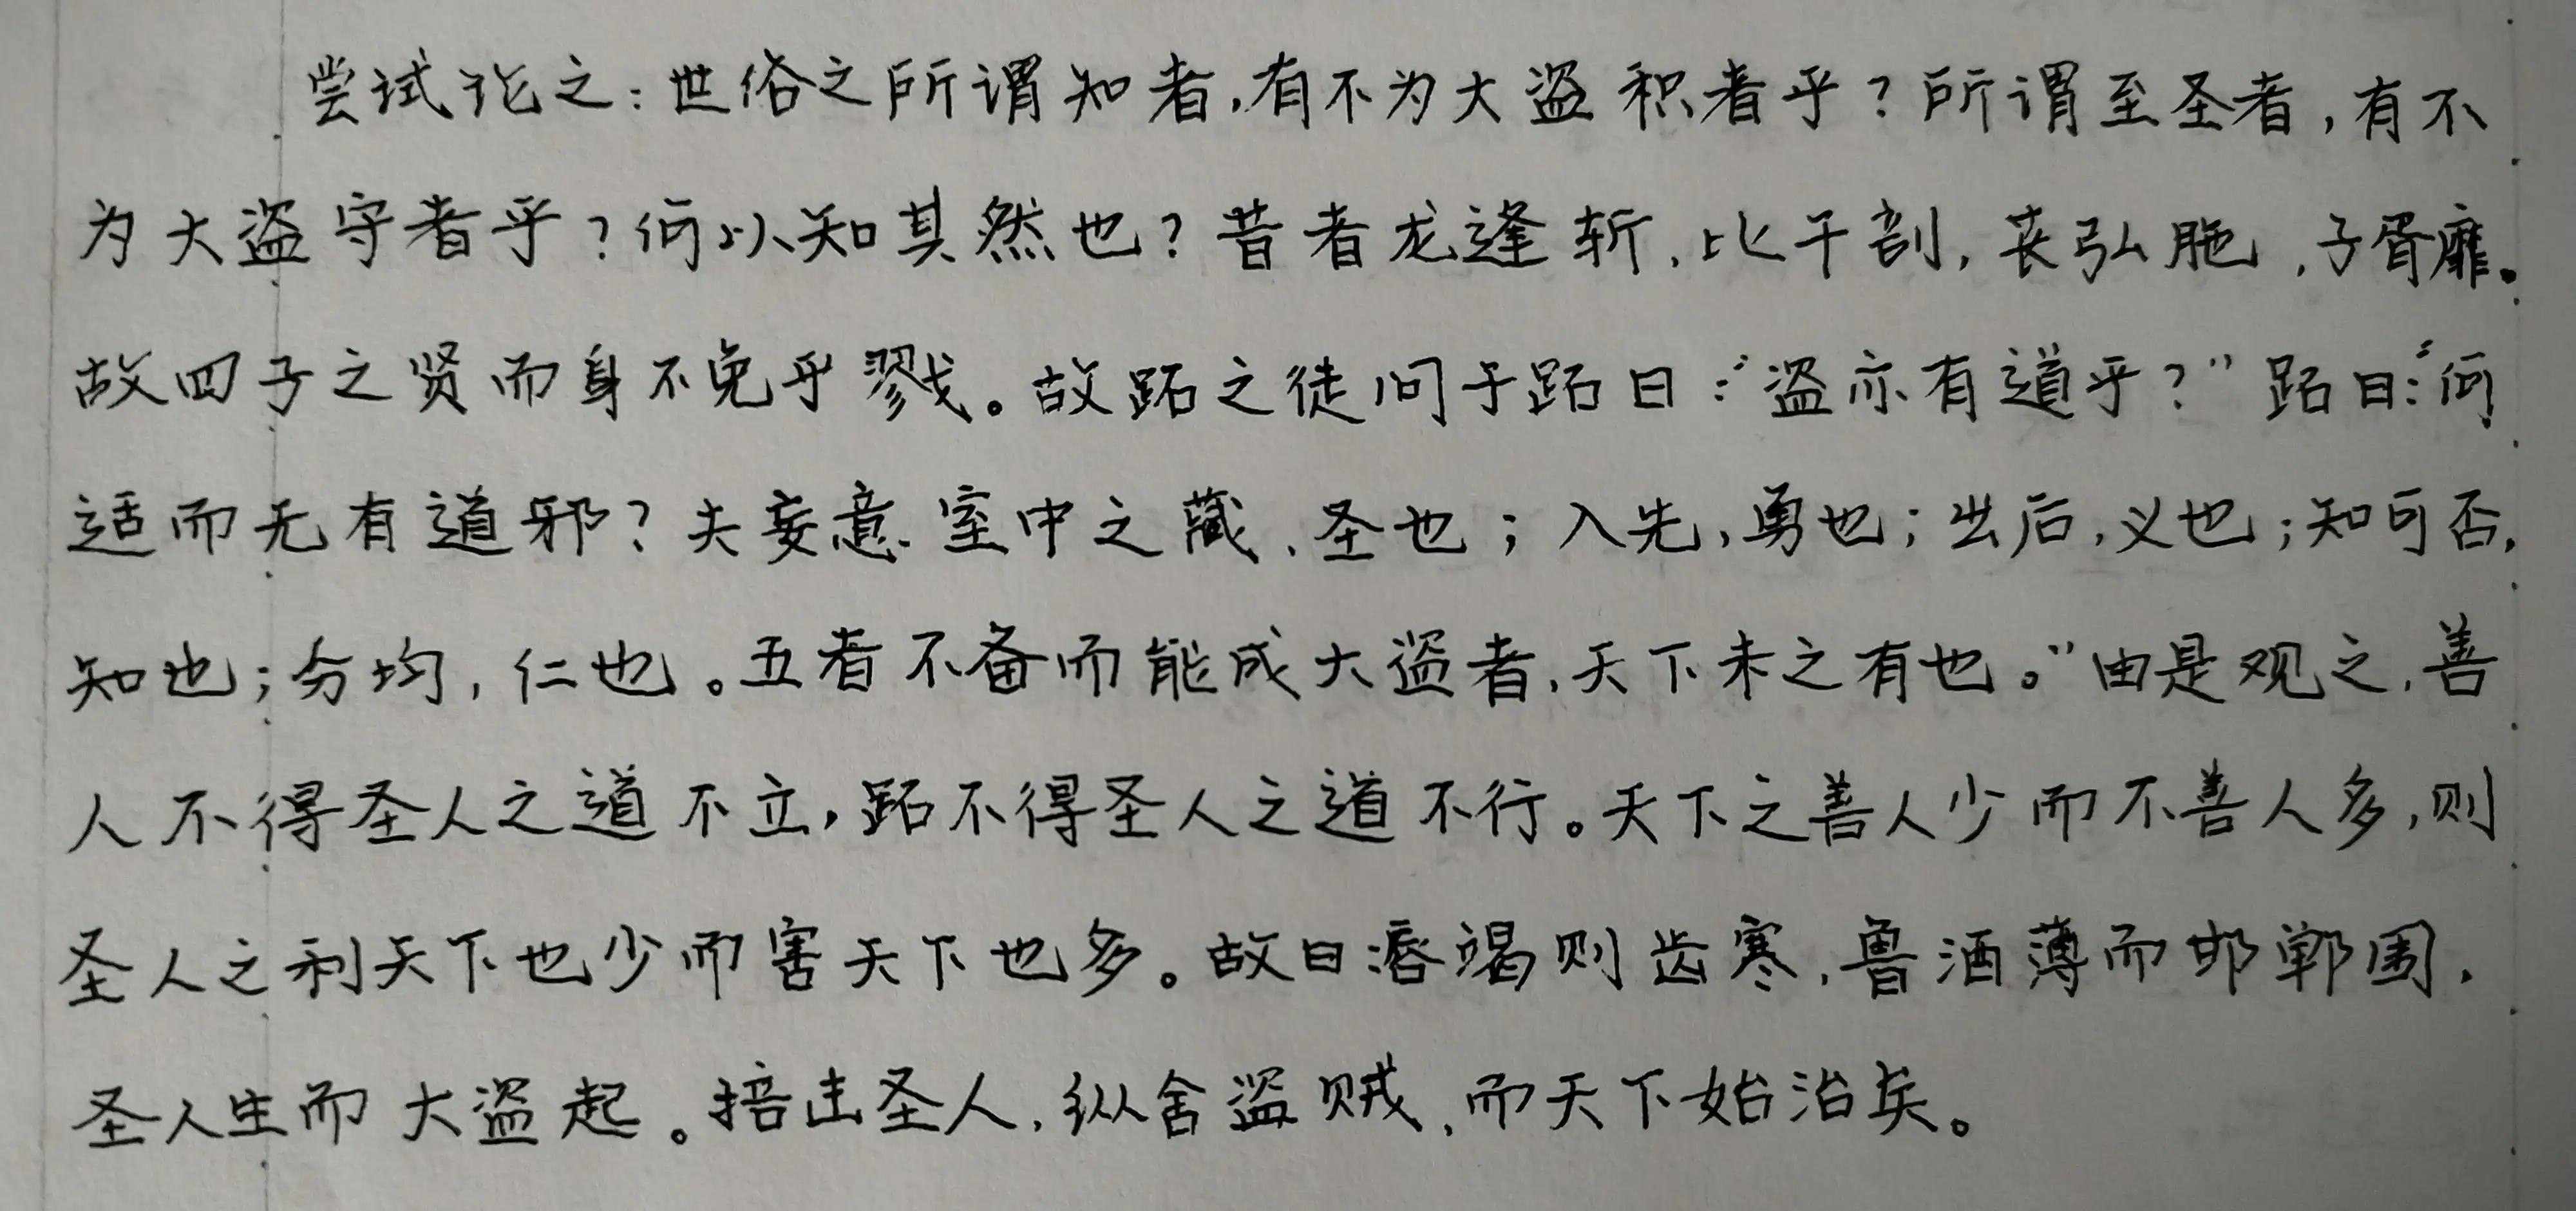 尝试论之：世俗之所谓知者，有不为大盗积者乎？所谓至圣者，有不
为大盗守者乎？何以知其然也？昔者龙逢斩，比干剖，苌弘胣，子胥靡。
故四子之贤而身不免乎戮。故跖之徒问于跖曰：“盗亦有道乎？”跖曰：“何
适而无有道邪？夫妄意室中之藏，圣也；入先，勇也；出后，义也；知可否，
知也；分均，仁也。五者不备而能成大盗者，天下未之有也。”由是观之，善
人不得圣人之道不立，跖不得圣人之道不行。天下之善人少而不善人多，则
圣人之利天下也少而害天下也多。故曰唇竭则齿寒，鲁酒薄而邯郸围，
圣人生而大盗起。掊击圣人，纵舍盗贼，而天下始治矣。